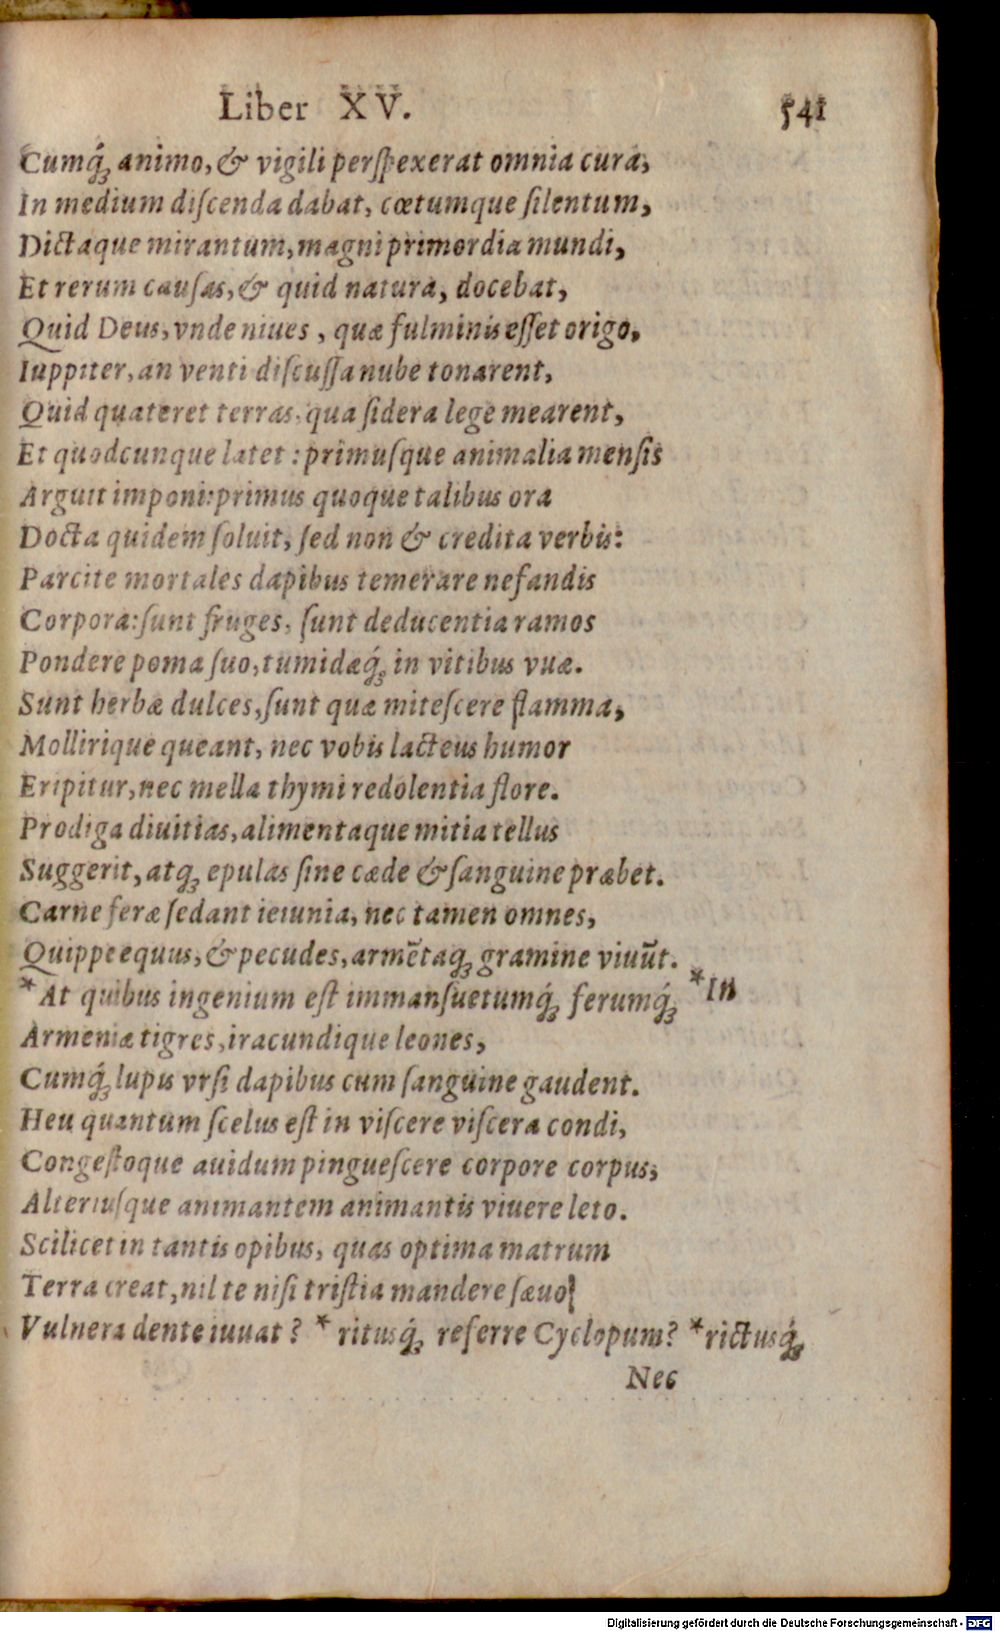 Liber XV. 541
Cumq́ꝫ animo, & vigili perſpexerat omnia cura,
In medium diſcenda dabat, cœtumque ſilentum,
Dictaque mirantum, magni primordia mundi,
Et rerum cauſas, & quid natura, docebat,
Quid Deus, vnde niues, quæ fulminis eſſet origo,
Iuppiter, an venti diſcuſſa nube tonarent,
Quid quateret terras, qua ſidera lege mearent,
Et quodcunque latet: primuſque animalia menſis
Arguit imponi: primus quoque talibus ora
Docta quidem ſoluit, ſed non & credita verbis:
Parcite mortales dapibus temerare nefandis
Corpora: ſunt fruges, ſunt deducentia ramos
Pondere poma ſuo, tumidæq́ꝫ in vitibus vuæ.
Sunt herbæ dulces, ſunt quæ miteſcere flamma,
Mollirique queant, nec vobis lacteus humor
Eripitur, nec mella thymi redolentia flore.
Prodiga diuitias, alimentaque mitia tellus
Suggerit, atqꝫ epulas ſine cæde & ſanguine præbet.
Carne feræ ſedant ieiunia, nec tamen omnes,
Quippe equus, & pecudes, armẽtaqꝫ gramine viuũt.
*At quibus ingenium eſt immanſuetumq́ꝫ ferumq́ꝫ *In
Armeniæ tigres, iracundique leones,
Cumq́ꝫ lupis vrſi dapibus cum ſanguine gaudent.
Heu quantum ſcelus eſt in viſcere viſcera condi,
Congeſtoque auidum pingueſcere corpore corpus,
Alteriuſque animantem animantis viuere leto.
Scilicet in tantis opibus, quas optima matrum
Terra creat, nil te niſi triſtia mandere ſæuo
Vulnera dente iuuat? * ritusq́ꝫ referre Cyclopum? *rictusq́ꝫ
Nec
Digitalisierung gefördert durch die Deutsche Forschungsgemeinschaft - DFG